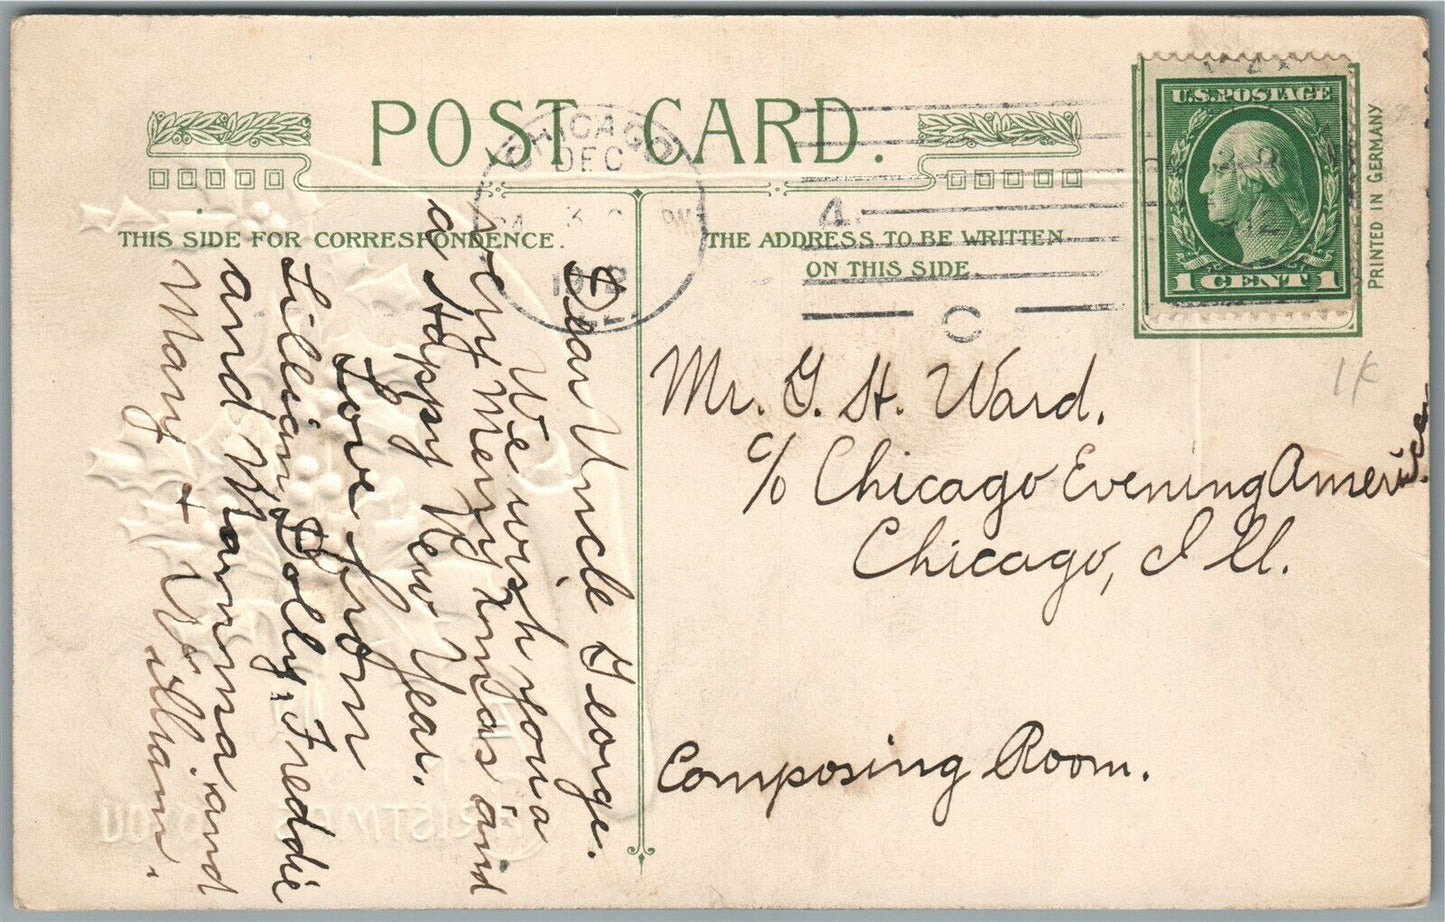 POST CARD.
THIS SIDE FOR CORRESPONDENCE.
THE ADDRESS TO BE WRITTEN
ON THIS SIDE.
CHICAGO
DEC
1912
ILL.
4
U.S. POSTAGE
1 CENT 1
PRINTED IN GERMANY
1K
Mr. G. H. Ward.
c/o Chicago Evening American
Chicago, Ill.
Composing Room.
Dear Uncle George.
We wish you a
very Merry Xmas and
a Happy New Year.
Love from
Lillian, Dolly, Freddie
and Mamma and
Mary + William.
CHRISTMAS
YOU